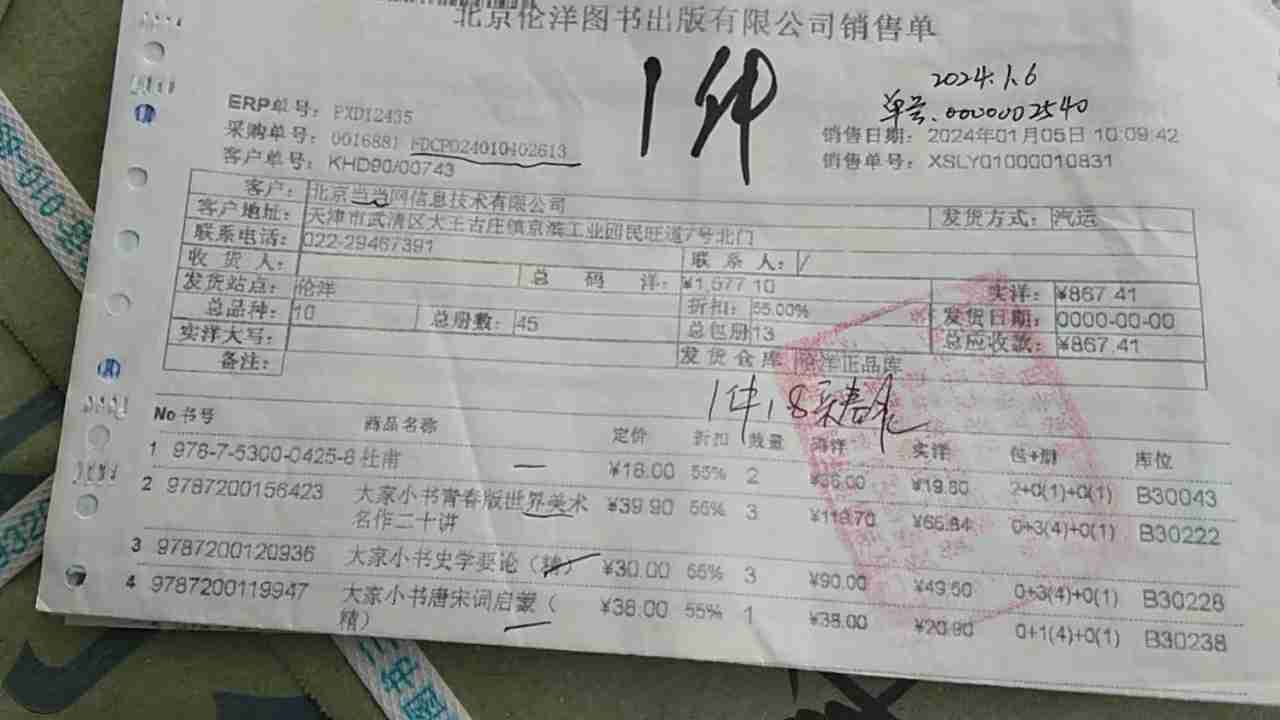 北京伦洋图书出版有限公司销售单
1件
2024.1.6
单号.0000002540
ERP单号: PXD12435
采购单号: 0016881 FDCP024010402613
客户单号: KHD90/00743
销售日期: 2024年01月05日 10:09:42
销售单号: XSLY01000010831
客户: 北京当当网信息技术有限公司 发货方式: 汽运
客户地址: 天津市武清区大王古庄镇京滨工业园民旺道7号北门
联系电话: 022-29467391 联系人: /
收货人: 总码洋: ¥1,577.10 实洋: ¥867.41
发货站点: 伦洋 折扣: 55.00% 发货日期: 0000-00-00
总品种: 10 总册数: 45 总包册 13 总应收款: ¥867.41
实洋大写: 发货仓库 伦洋正品库
备注:
1件, 8
No 书号 商品名称 定价 折扣 数量 码洋 实洋 包+册 库位
1 978-7-5300-0425-8 杜甫 ¥18.00 55% 2 ¥36.00 ¥19.80 2+0(1)+0(1) B30043
2 9787200156423 大家小书青春版世界美术 ¥39.90 55% 3 ¥119.70 ¥65.84 0+3(4)+0(1) B30222
名作二十讲
3 9787200120936 大家小书史学要论（精） ¥30.00 55% 3 ¥90.00 ¥49.50 0+3(4)+0(1) B30228
4 9787200119947 大家小书唐宋词启蒙（ ¥38.00 55% 1 ¥38.00 ¥20.90 0+1(4)+0(1) B30238
精）